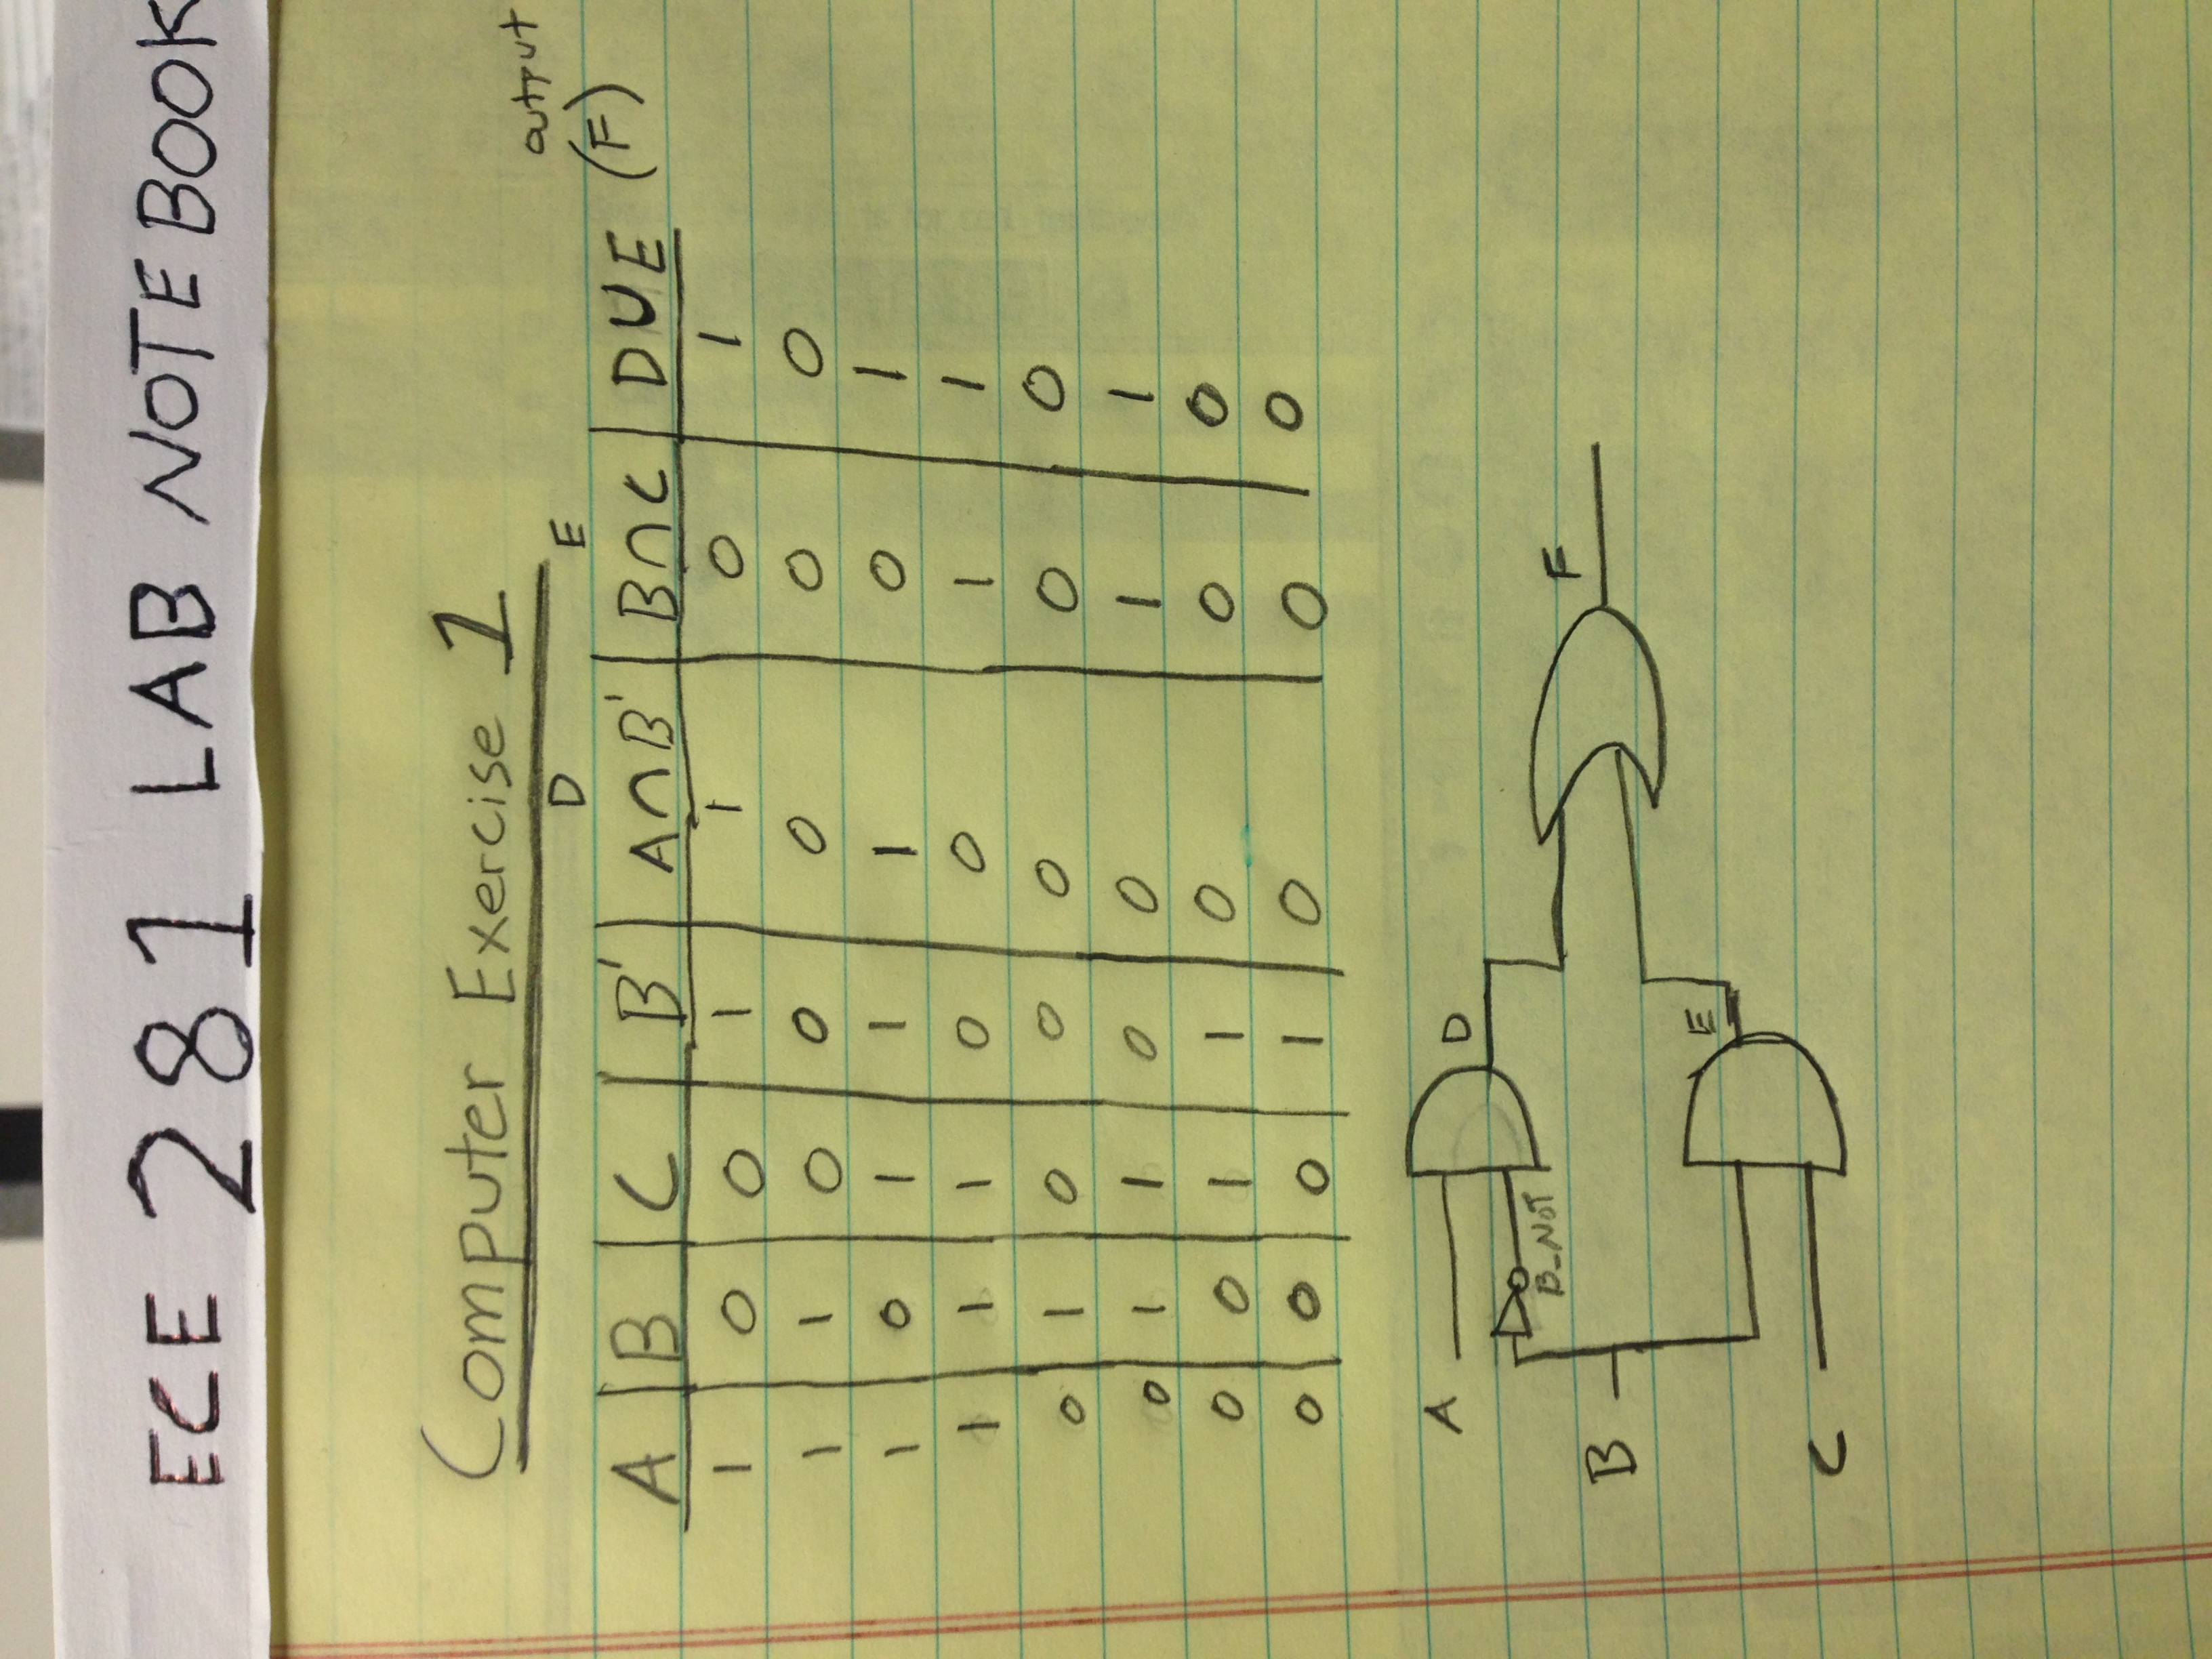 ECE 281 LAB NOTEBOOK
Computer Exercise 1
D E output
A B C B' A∩B' B∩C D∪E (F)
1 0 0 1 1 0 1
1 1 0 0 0 0 0
1 0 1 1 1 0 1
1 1 1 0 0 1 1
0 1 0 0 0 0 0
0 1 1 0 0 1 1
0 0 1 1 0 0 0
0 0 0 1 0 0 0
A D
B_NOT
F
B
E
C